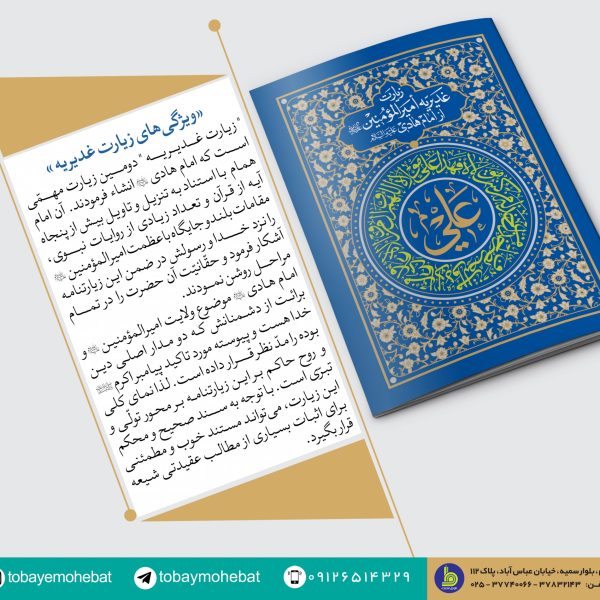 «ویژگی‌های زیارت غدیریه»
"زیارت غدیریه" دومین زیارت مهمّی
است که امام هادی انشاء فرمودند. آن امام
همام با استناد به تنزیل و تاویل بیش از پنجاه
آیه از قرآن و تعداد زیادی از روایات نبوی،
مقامات بلند و جایگاه باعظمت امیرالمؤمنین
را نزد خدا و رسولش در ضمن این زیارتنامه
آشکار فرمود و حقّانیّت آن حضرت را در تمام
مراحل روشن نمودند.
امام هادی موضوع ولایت امیرالمؤمنین و
برائت از دشمنانش که دو مدار اصلی دین
خداست و پیوسته مورد تاکید پیامبراکرم
بوده را مدّ نظر قرار داده است. لذا نمای کلی
و روح حاکم بر این زیارتنامه بر محور تولّی و
تبرّی است. با توجه به سند صحیح و محکم
این زیارت، می‌تواند مستند خوب و مطمئنی
برای اثبات بسیاری از مطالب عقیدتی شیعه
قرار بگیرد.
زیارت
غدیریه امیرالمؤمنین
از امام هادی علیه السلام
علی
tobayemohebat
tobaymohebat
۰۹۱۲۶۵۱۴۳۲۹
، بلوار سمیه، خیابان عباس آباد، پلاک ۱۱۲
۰۲۵ - ۳۷۷۴۰۰۶۶ - ۳۷۸۳۲۱۴۳